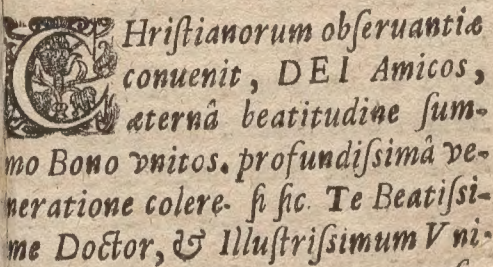 CHriſtianorum obſeruantiæ
conuenit, DEI Amicos,
æternâ beatitudine ſum-
mo Bono vnitos. profundiſsimâ ve-
neratione colere. ſi ſic. Te Beatiſsi-
me Doctor, & Illuſtriſsimum Vni-